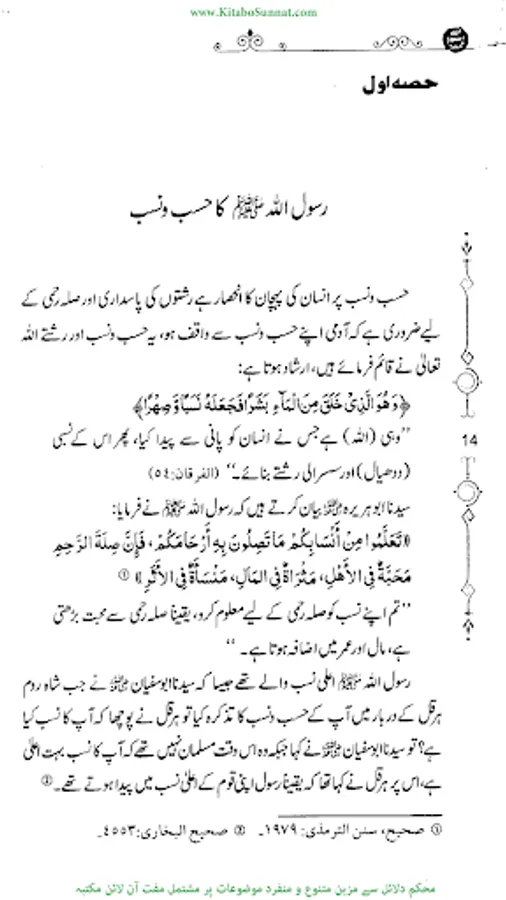 www.KitaboSunnat.com
حصہ اول
رسول اللہ ﷺ کا حسب و نسب
حسب و نسب پر انسان کی پہچان کا انحصار ہے رشتوں کی پاسداری اور صلہ رحمی کے
لیے ضروری ہے کہ آدمی اپنے حسب و نسب سے واقف ہو، یہ حسب و نسب اور رشتے اللہ
تعالیٰ نے قائم فرمائے ہیں، ارشاد ہوتا ہے:
﴿وَهُوَ الَّذِیْ خَلَقَ مِنَ الْمَآءِ بَشَرًا فَجَعَلَهٗ نَسَبًا وَّ صِهْرًا﴾
”وہی (اللہ) ہے جس نے انسان کو پانی سے پیدا کیا، پھر اس کے نسبی
14
(ددھیال) اور سسرالی رشتے بنائے۔“ (الفرقان: ٥٤)
سیدنا ابو ہریرہ رضی اللہ عنہ بیان کرتے ہیں کہ رسول اللہ ﷺ نے فرمایا:
((تَعَلَّمُوا مِنْ أَنْسَابِكُمْ مَا تَصِلُونَ بِهِ أَرْحَامَكُمْ، فَإِنَّ صِلَةَ الرَّحِمِ
مَحَبَّةٌ فِي الأَهْلِ، مَثْرَاةٌ فِي المَالِ، مَنْسَأَةٌ فِي الأَثَرِ)) ①
”تم اپنے نسب کو صلہ رحمی کے لیے معلوم کرو، یقیناً صلہ رحمی سے محبت بڑھتی
ہے، مال اور عمر میں اضافہ ہوتا ہے۔“
رسول اللہ ﷺ اعلیٰ نسب والے تھے جیسا کہ سیدنا ابو سفیان رضی اللہ عنہ نے جب شاہ روم
ہرقل کے دربار میں آپ کے حسب و نسب کا تذکرہ کیا تو ہرقل نے پوچھا کہ آپ کا نسب کیا
ہے؟ تو سیدنا ابو سفیان رضی اللہ عنہ نے کہا جبکہ وہ اس وقت مسلمان نہیں تھے کہ آپ کا نسب بہت اعلیٰ
ہے، اس پر ہرقل نے کہا تھا کہ یقیناً رسول اپنی قوم کے اعلیٰ نسب میں پیدا ہوتے تھے۔ ②
① صحیح، سنن الترمذی: ١٩٧٩۔ ② صحیح البخاری: ٤٥٥٣۔
محکم دلائل سے مزین متنوع و منفرد موضوعات پر مشتمل مفت آن لائن مکتبہ